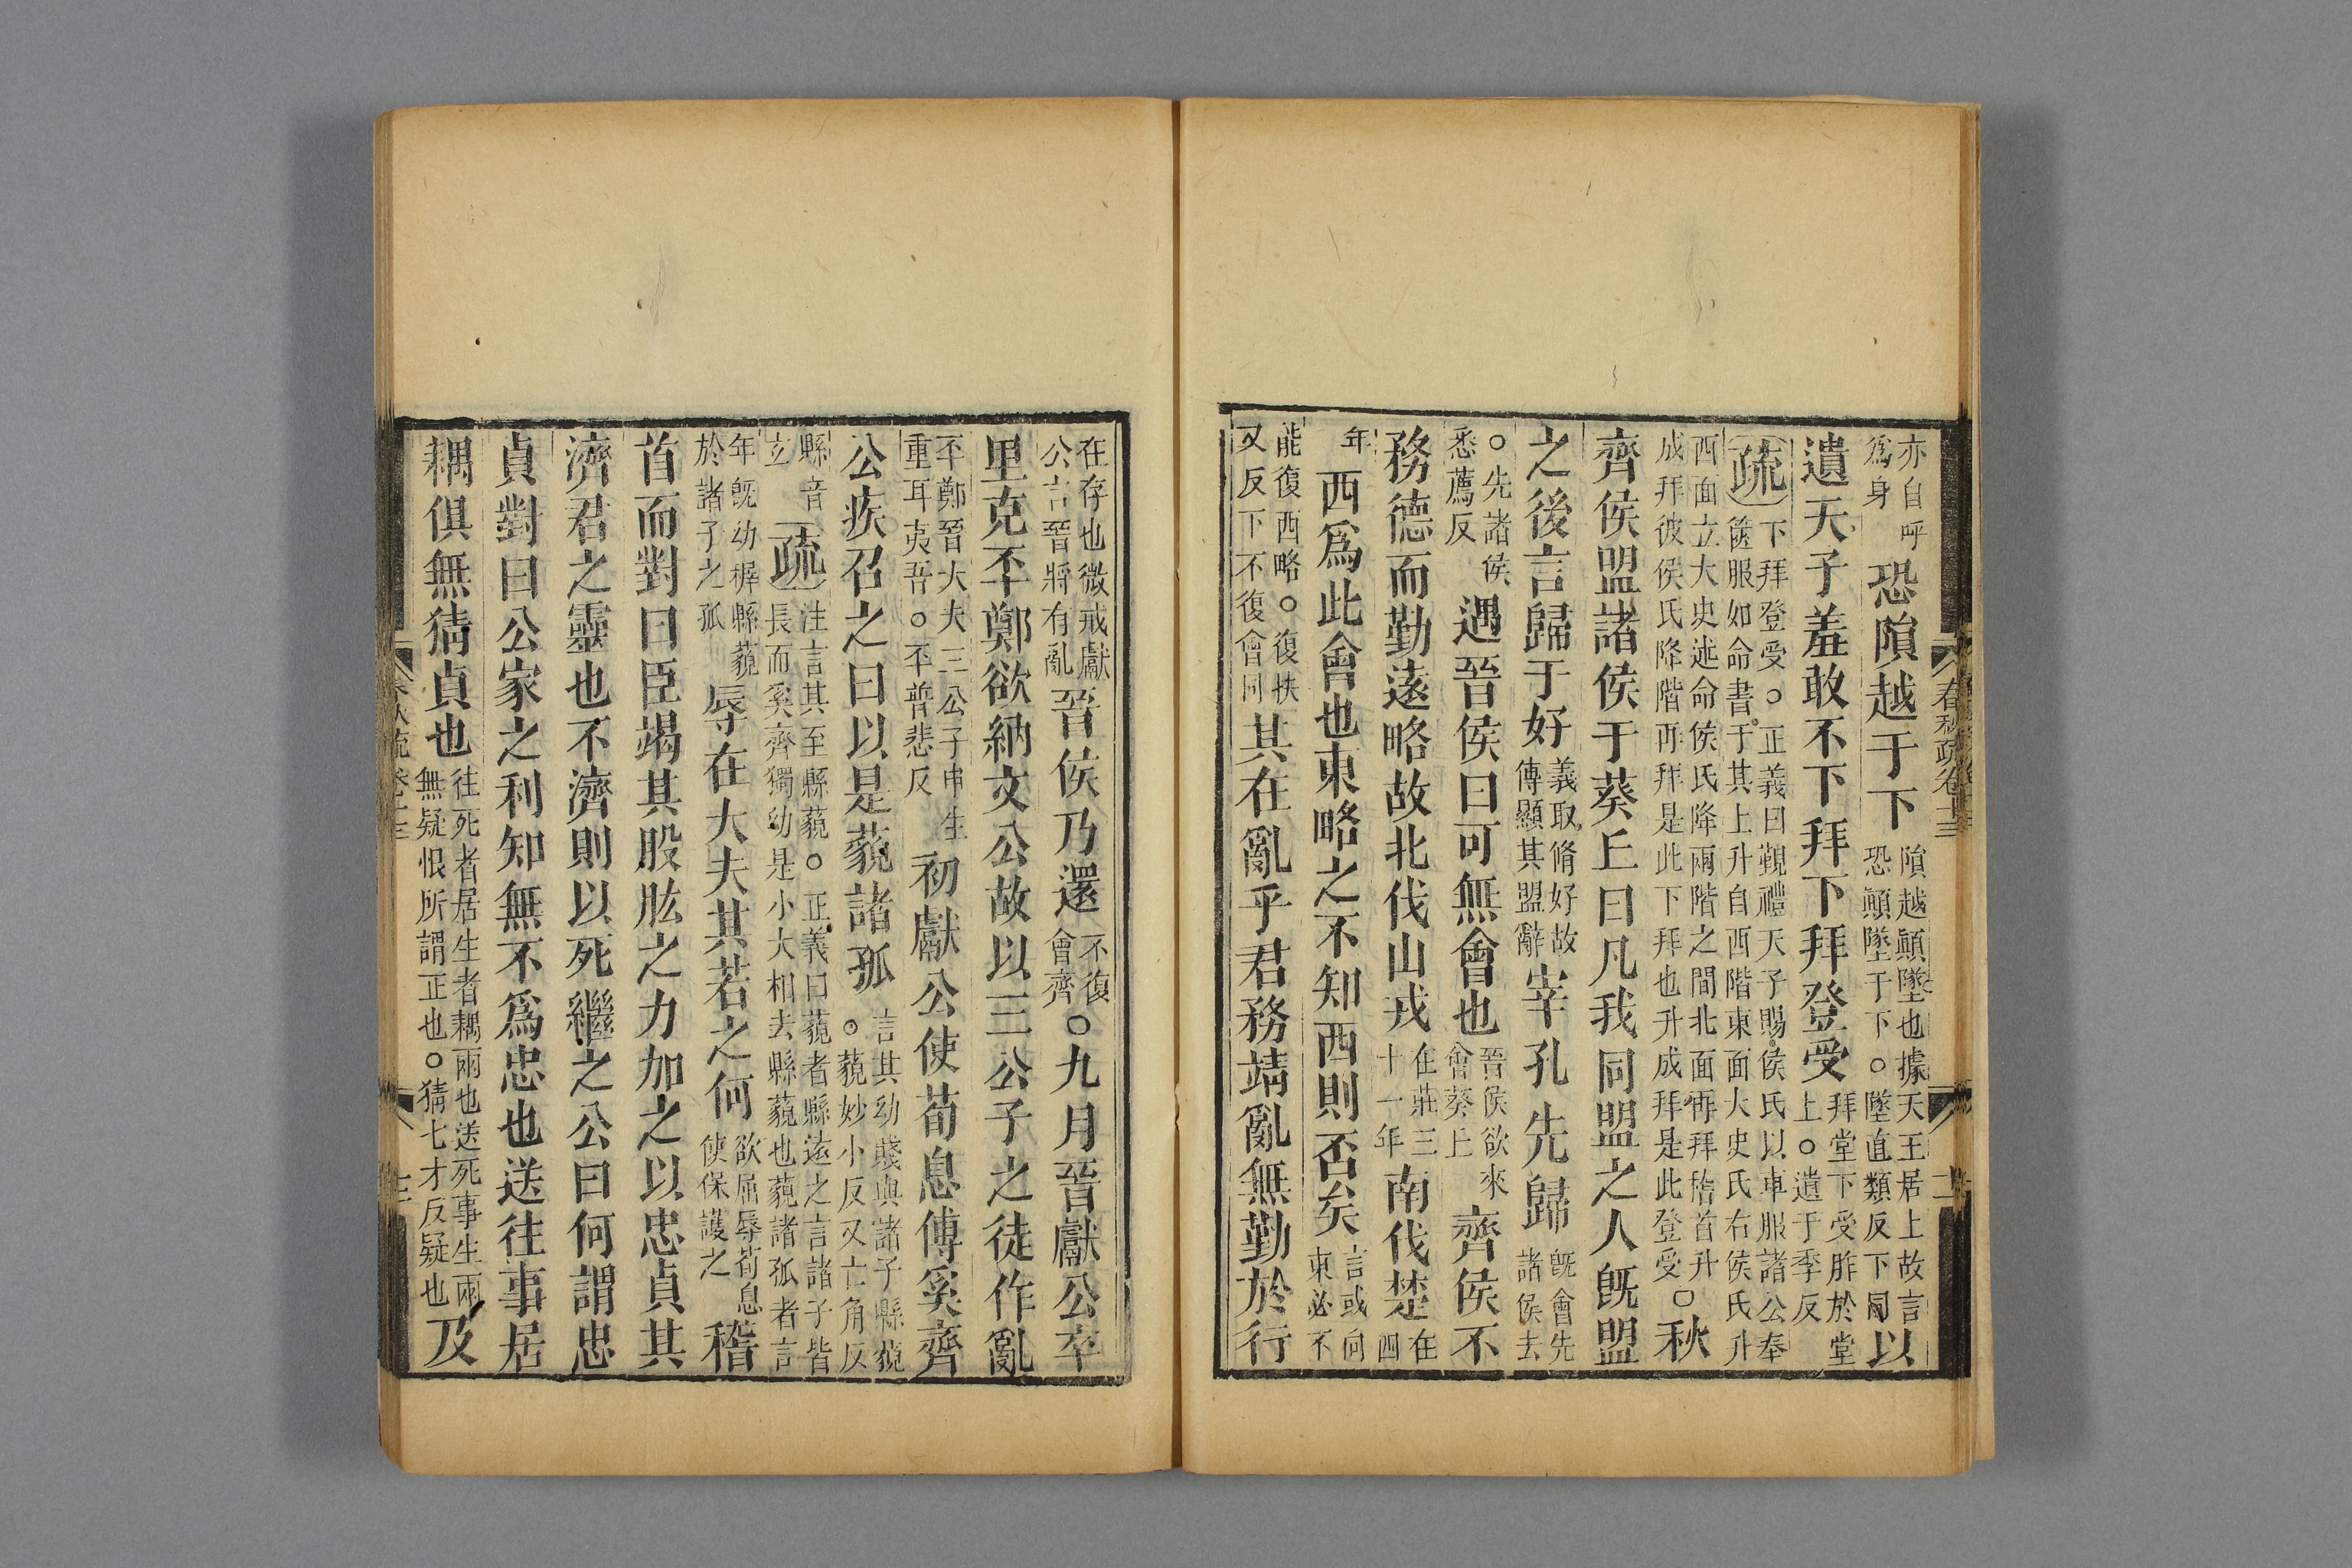 亦自呼爲身恐隕越于下隕越顚墜也據天王居上故言恐顚墜于下○墜直類反下同以
遺天子羞敢不下拜下拜登受拜堂下受胙於堂上○遺于季反
疏下拜登受○正義曰覲禮天子賜侯氏以車服諸公奉篋服如命書于其上升自西階東面大史氏右侯氏升
西面立大史述命侯氏降兩階之間北面再拜稽首升成拜彼侯氏降階再拜是此下拜也升成拜是此登受○秋
齊侯盟諸侯于葵丘曰凡我同盟之人旣盟
之後言歸于好義取脩好故傳顯其盟辭宰孔先歸旣會先諸侯去
○先諸侯悉薦反遇晉侯曰可無會也晉侯欲來會葵丘齊侯不
務德而勤遠略故北伐山戎在莊三十一年南伐楚在四
年西爲此會也東略之不知西則否矣言或向東必不
能復西略○復扶又反下不復會同其在亂乎君務靖亂無勤於行
春秋疏卷十三
在存也微戒獻公言晉將有亂晉侯乃還不復會齊○九月晉獻公卒
里克丕鄭欲納文公故以三公子之徒作亂
丕鄭晉大夫三公子申生重耳夷吾○丕普悲反初獻公使荀息傅奚齊
公疾召之曰以是藐諸孤言其幼賤與諸子縣藐○藐妙小反又亡角反
縣音玄疏注言其至縣藐○正義曰藐者縣遠之言諸子皆長而奚齊獨幼是小大相去縣藐也藐諸孤者言
年旣幼稺縣藐於諸子之孤辱在大夫其若之何欲屈辱荀息使保護之稽
首而對曰臣竭其股肱之力加之以忠貞其
濟君之靈也不濟則以死繼之公曰何謂忠
貞對曰公家之利知無不爲忠也送往事居
耦俱無猜貞也往死者居生者耦兩也送死事生兩無疑恨所謂正也○猜七才反疑也及